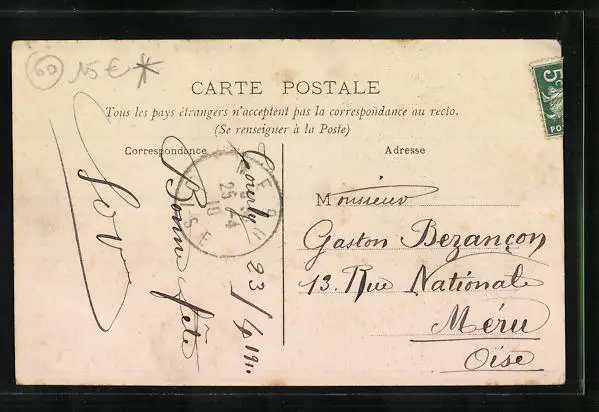 60 15€*
CARTE POSTALE
Tous les pays étrangers n'acceptent pas la correspondance au recto.
(Se renseigner à la Poste)
Correspondance
Adresse
5c
PO
23/4 191
Bonne fête
MERU
25 - 4
10
OISE
Monsieur
Gaston Bezançon
13. Rue Nationale
Méru
Oise